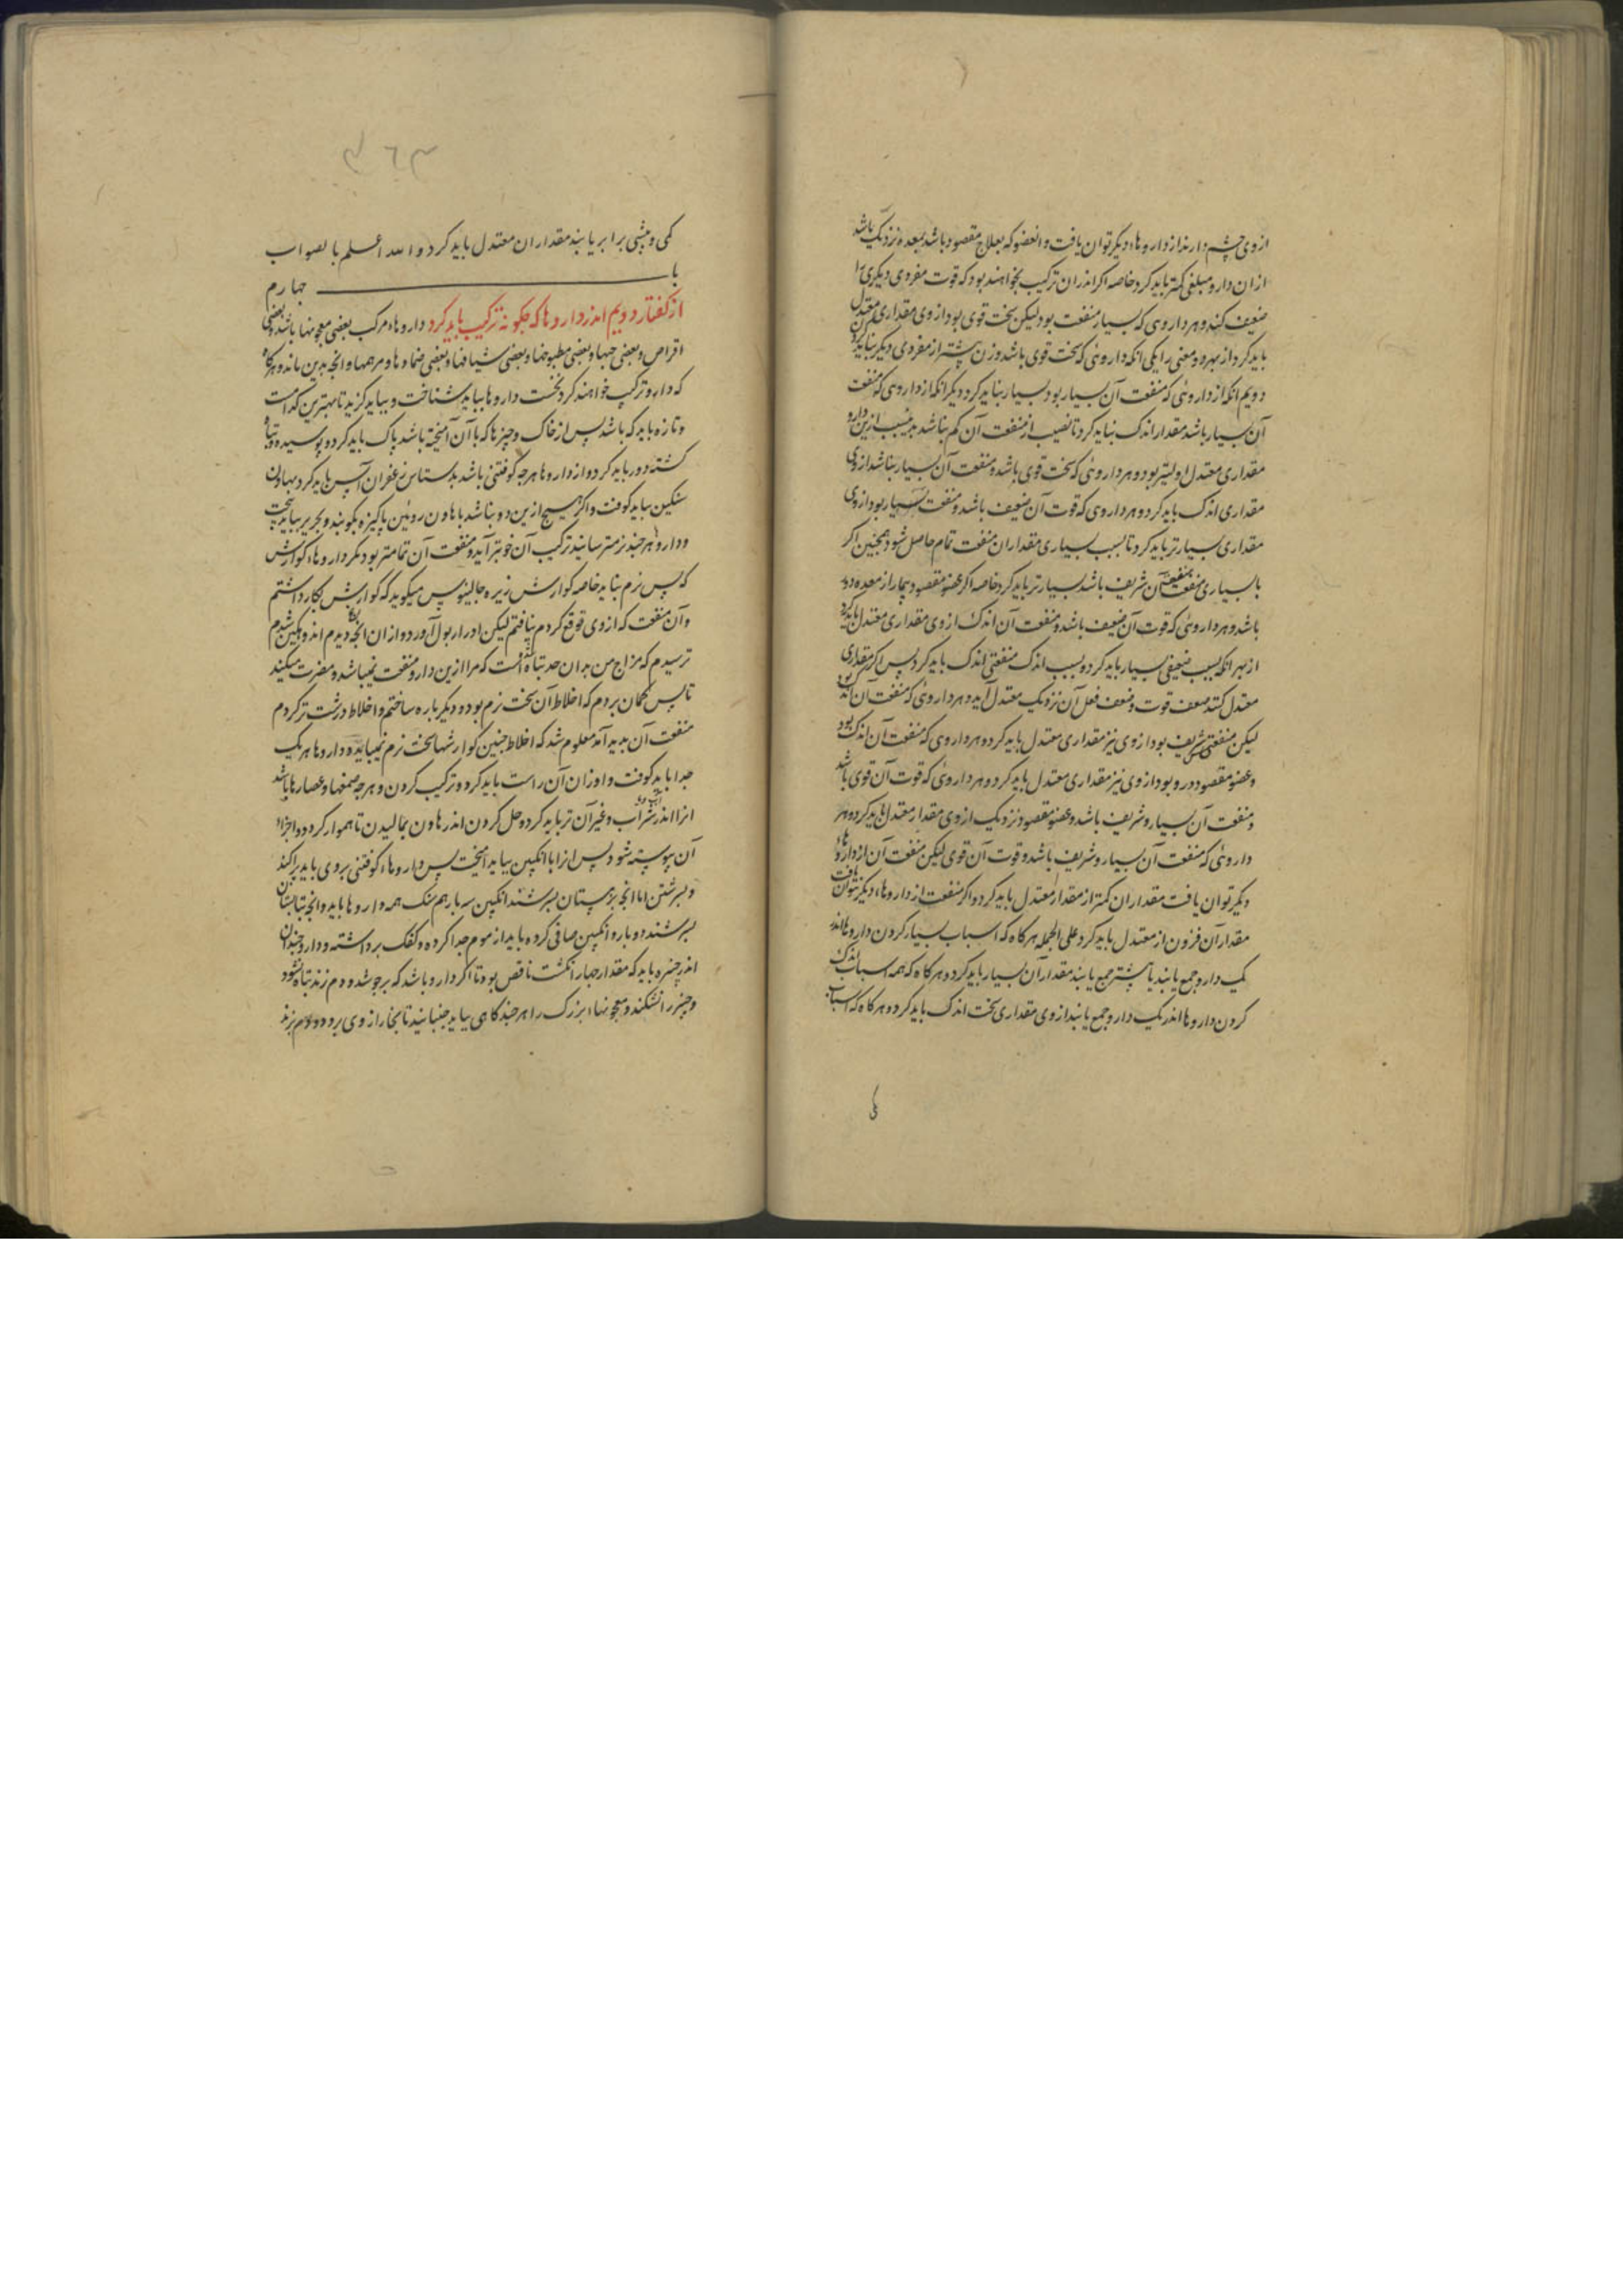 ازوی چشم دارند از داروهاء دیکر توان یافت و انعضو که بعلاج مقصود باشد بمعده نزدیک باشد
ازان دارو مبلغی کمتر باید کرد خاصه اکر اندران ترکیب بخواهند بود که قوت مفردی دیکری را
ضعیف کند و هر داروی که بسیار منفعت بود لیکن سخت قوی بود ازوی مقداری معتدل
باید کرد از بهر دو معنی را یکی انکه داروئی که سخت قوی باشد وزن بیشتر از مفردی دیکر نباید کرد
دویم انکه از داروئی که منفعت آن بسیار بود بسیار نباید کرد دیکر انکه از داروی که منفعت
آن بسیار باشد مقدار اندک نباید کرد تا نصیب از منفعت آن کم نباشد بدین سبب ازین دارو
مقداری معتدل اولیتر بود و هر داروئی که سخت قوی باشد و منفعت آن بسیار نباشد ازوی
مقداری اندک باید کرد و هر داروی که قوت آن ضعیف باشد و منفعت بسیار بود ازوی
مقداری بسیارتر باید کرد تا بسبب بسیاری مقدار ان منفعت تمام حاصل شود همچنین اکر
با بسیاری منفعت منفعت آن شریف باشد بسیارتر باید کرد خاصه اکر عضو مقصود بیمار از معده دور
باشد و هر داروئی که قوت آن ضعیف باشد و منفعت آن اندک ازوی مقداری معتدل باید کرد
از بهر انکه بسبب ضعیفی بسیار باید کرد و بسبب اندک منفعتی اندک باید کرد پس اکر مقداری
معتدل کنند ضعف قوت و ضعف فعل آن نزدیک معتدل آید و هر داروئی که منفعت آن اندک بود
لیکن منفعتی شریف بود ازوی نیز مقداری معتدل باید کرد و هر داروی که منفعت آن اندک بود
و عضو مقصود دور بود ازوی نیز مقداری معتدل باید کرد و هر داروئی که قوت آن قوی باشد
و منفعت آن بسیار و شریف باشد و عضو مقصود نزدیک ازوی مقدار معتدل باید کرد و هر
داروئی که منفعت آن بسیار و شریف باشد و قوت آن قوی لیکن منفعت آن از داروهاء
دیکر توان یافت مقدار ان کمتر از مقدار معتدل باید کرد و اکر منفعت از داروهاء دیکر نتوان یافت
مقدار آن فزون از معتدل باید کرد علی الجمله هرکاه که اسباب بسیار کردن داروها اندر
یک دارو جمع یابند یا بیشتر جمع یابند مقدار آن بسیار باید کرد و هرکاه که همه اسباب اندک
کردن داروها اندر یک دارو جمع یابند ازوی مقداری سخت اندک باید کرد و هرکاه که اسباب
کمی و بیشی برابر یابند مقدار ان معتدل باید کرد و الله اعلم بالصواب
باب چهارم
از کفتار دویم اندر داروها که چکونه ترکیب باید کرد داروهاء مرکب بعضی معجونها باشد و بعضی
اقراص و بعضی حبها و بعضی مطبوخها و بعضی شیافها و بعضی ضمادها و مرهمها و انچه بدین ماند و هرکاه
که دارو ترکیب خواهند کرد نخست داروها بباید شناخت و بباید کزید تا بهترین کدامست
و تازه باید که باشد پس از خاک و چیزها که با آن آمیخته باشد پاک باید کرد و پوسیده و تباه
کشته دور باید کرد و از داروها هرچه کوفتنی باشد بدستاس زعفران آس باید کرد بهاون
سنکین بباید کوفت و اکر هیچ ازین دو نباشد بهاون روئین پاکیزه بکوبند و بحریر ببایدپخت
و دارو هرچند نرمتر سایند ترکیب آن خوبتر آید و منفعت آن تمامتر بود مکر داروهاء کوارش
که پس نرم نباید خاصه کوارش زیره جالینوس میکوید که کوارش بکار داشتم
و آن منفعت که ازوی توقع کردم نیافتم لیکن ادرار بول آورد و ازان انچه دیدم اندوهکین شدم
ترسیدم که مزاج من بدان حد تباه شده است که مرا ازین دارو منفعت نمیباشد و مضرت میکند
تا پس کمان بردم که اخلاط آن سخت نرم بوده دیکر باره ساختم و اخلاط درشت تر کردم
منفعت آن پدید آمد معلوم شد که اخلاط چنین کوارشها سخت نرم نمیباید و داروها هر یک
جدا باید کوفت و اوزان آن راست باید کرد و ترکیب کردن و هرچه صمغها و عصارها باشد
انرا اندر شراب و غیر آن تر باید کرد و حل کردن اندر هاون بمالیدن تا هموار کردد و اجزاء
آن پیوسته شود پس انرا با انکبین بباید آمیخت پس داروهاء کوفتنی بروی باید پراکند
و بسرشتن اما انچه بزمستان بسرشند انکبین سه بار هم سنک همه داروها باید و انچه بتابستان
بسرشند دو بار و انکبین صافی کرده باید از موم جدا کرده و کفک برداشته و دارو چندان
اندر خنبره باید که مقدار چهار انکشت ناقص بود تا اکر دارو باشد که برجوشد و دم زند تباه نشود
و خنبره را نشکند و معجونهاء بزرک را هر چند کاهی بباید جنبانید تا بخار ازوی برود و دم بزند